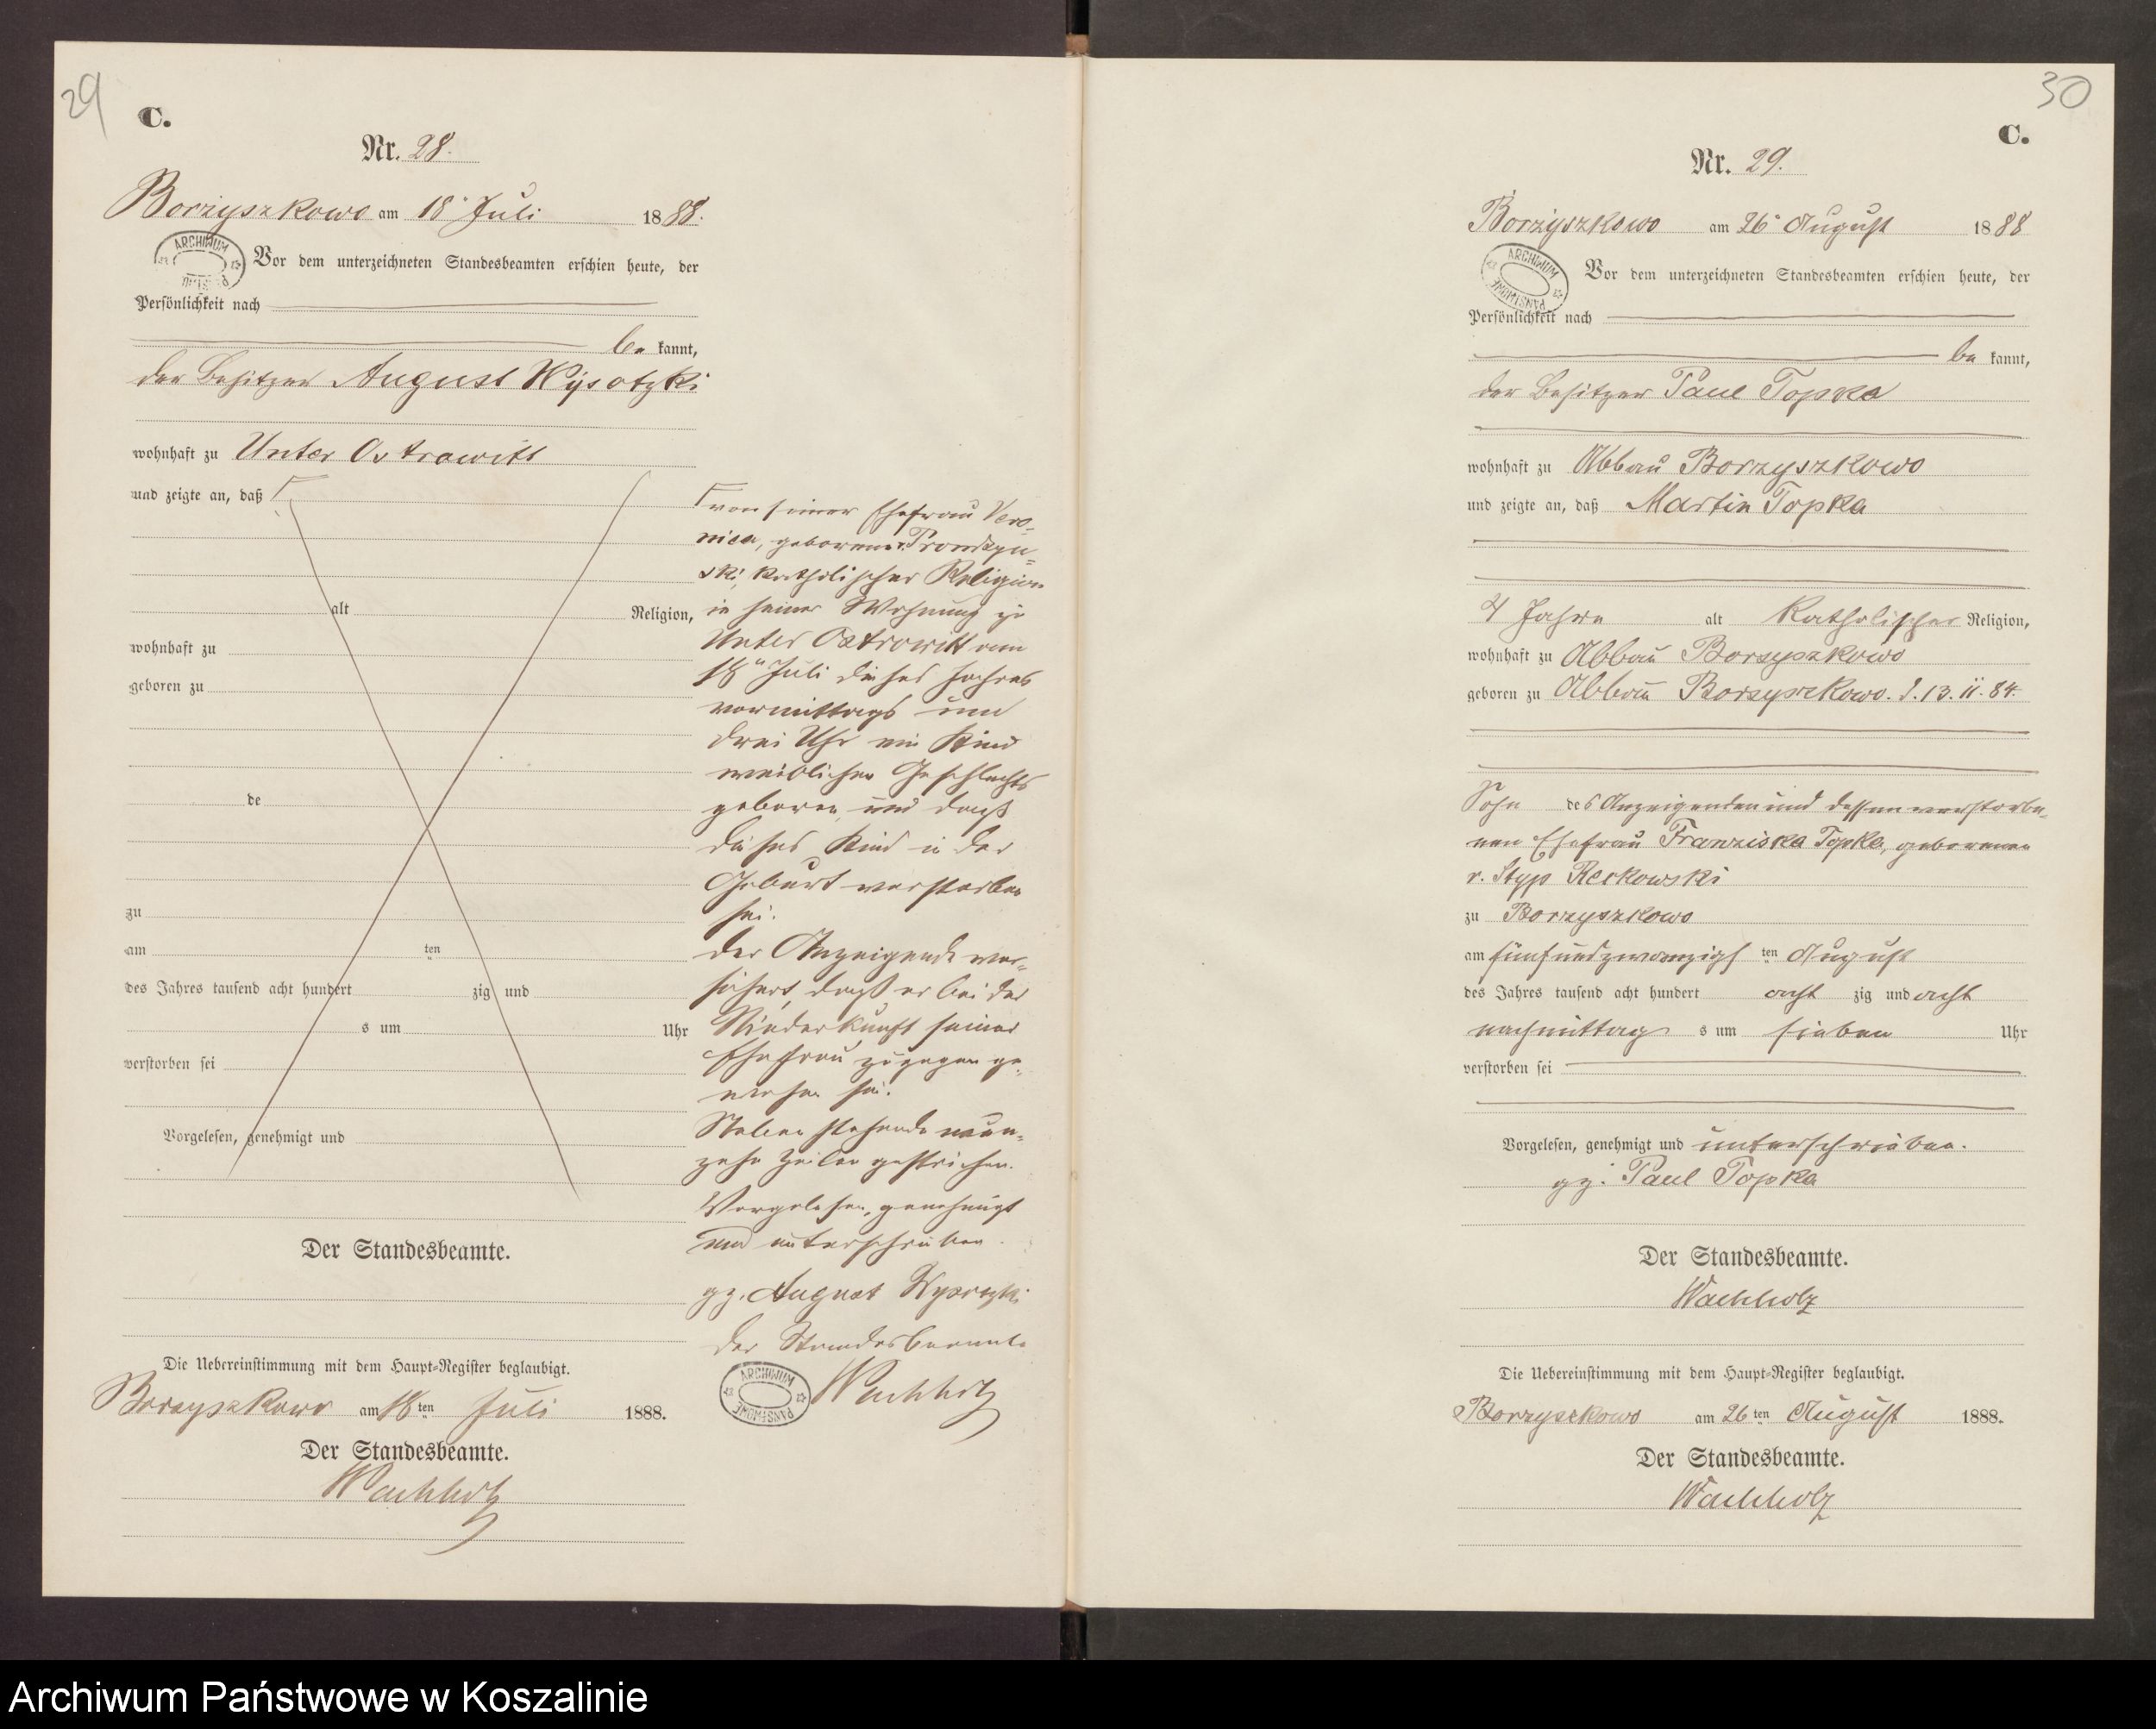 29
C.
Nr. 28.
Borzyszkowo am 18. Juli 1888.
ARCHIWUM
Vor dem unterzeichneten Standesbeamten erschien heute, der
Persönlichkeit nach
be kannt,
der Besitzer August Wysotzki
wohnhaft zu Unter Ostrowitt
und zeigte an, daß
alt Religion,
wohnhaft zu
geboren zu
de
zu
am ten
des Jahres tausend acht hundert zig und
s um Uhr
verstorben sei
Vorgelesen, genehmigt und
Der Standesbeamte.
Die Uebereinstimmung mit dem Haupt-Register beglaubigt.
Borzyszkowo am 18 ten Juli 1888.
Der Standesbeamte.
Wachholz
von seiner Ehefrau Vero-
nica, geborener Prondzyn-
ski, katholischer Religion
in seiner Wohnung zu
Unter Ostrowitt am
18ten Juli dieses Jahres
vormittags um
drei Uhr ein Kind
weiblichen Geschlechts
geboren und daß
dieses Kind in der
Geburt verstorben
sei.
Der Anzeigende ver-
sichert, daß er bei der
Niederkunft seiner
Ehefrau zugegen ge-
wesen sei.
Neben stehende neun-
zehn Zeilen gestrichen.
Vorgelesen, genehmigt
und unterschrieben.
gz. August Wysotzki
Der Standesbeamte
ARCHIWUM PAŃSTWOWE
Wachholz
30
C.
Nr. 29.
Borzyszkowo am 26. August 1888
ARCHIWUM PAŃSTWOWE
Vor dem unterzeichneten Standesbeamten erschien heute, der
Persönlichkeit nach
be kannt,
der Besitzer Paul Topka
wohnhaft zu Abbau Borzyszkowo
und zeigte an, daß Martin Topka
4 Jahre alt katholischer Religion,
wohnhaft zu Abbau Borzyszkowo
geboren zu Abbau Borzyszkowo. d. 13. 11. 84.
Sohn des Anzeigenden und dessen verstorbe-
nen Ehefrau Franziska Topka, geborenen
v. Styp Reckowski
zu Borzyszkowo
am fünfundzwanzigs ten August
des Jahres tausend acht hundert acht zig und acht
nachmittag s um sieben Uhr
verstorben sei
Vorgelesen, genehmigt und unterschrieben.
gz. Paul Topka
Der Standesbeamte.
Wachholz
Die Uebereinstimmung mit dem Haupt-Register beglaubigt.
Borzyszkowo am 26 ten August 1888.
Der Standesbeamte.
Wachholz
Archiwum Państwowe w Koszalinie